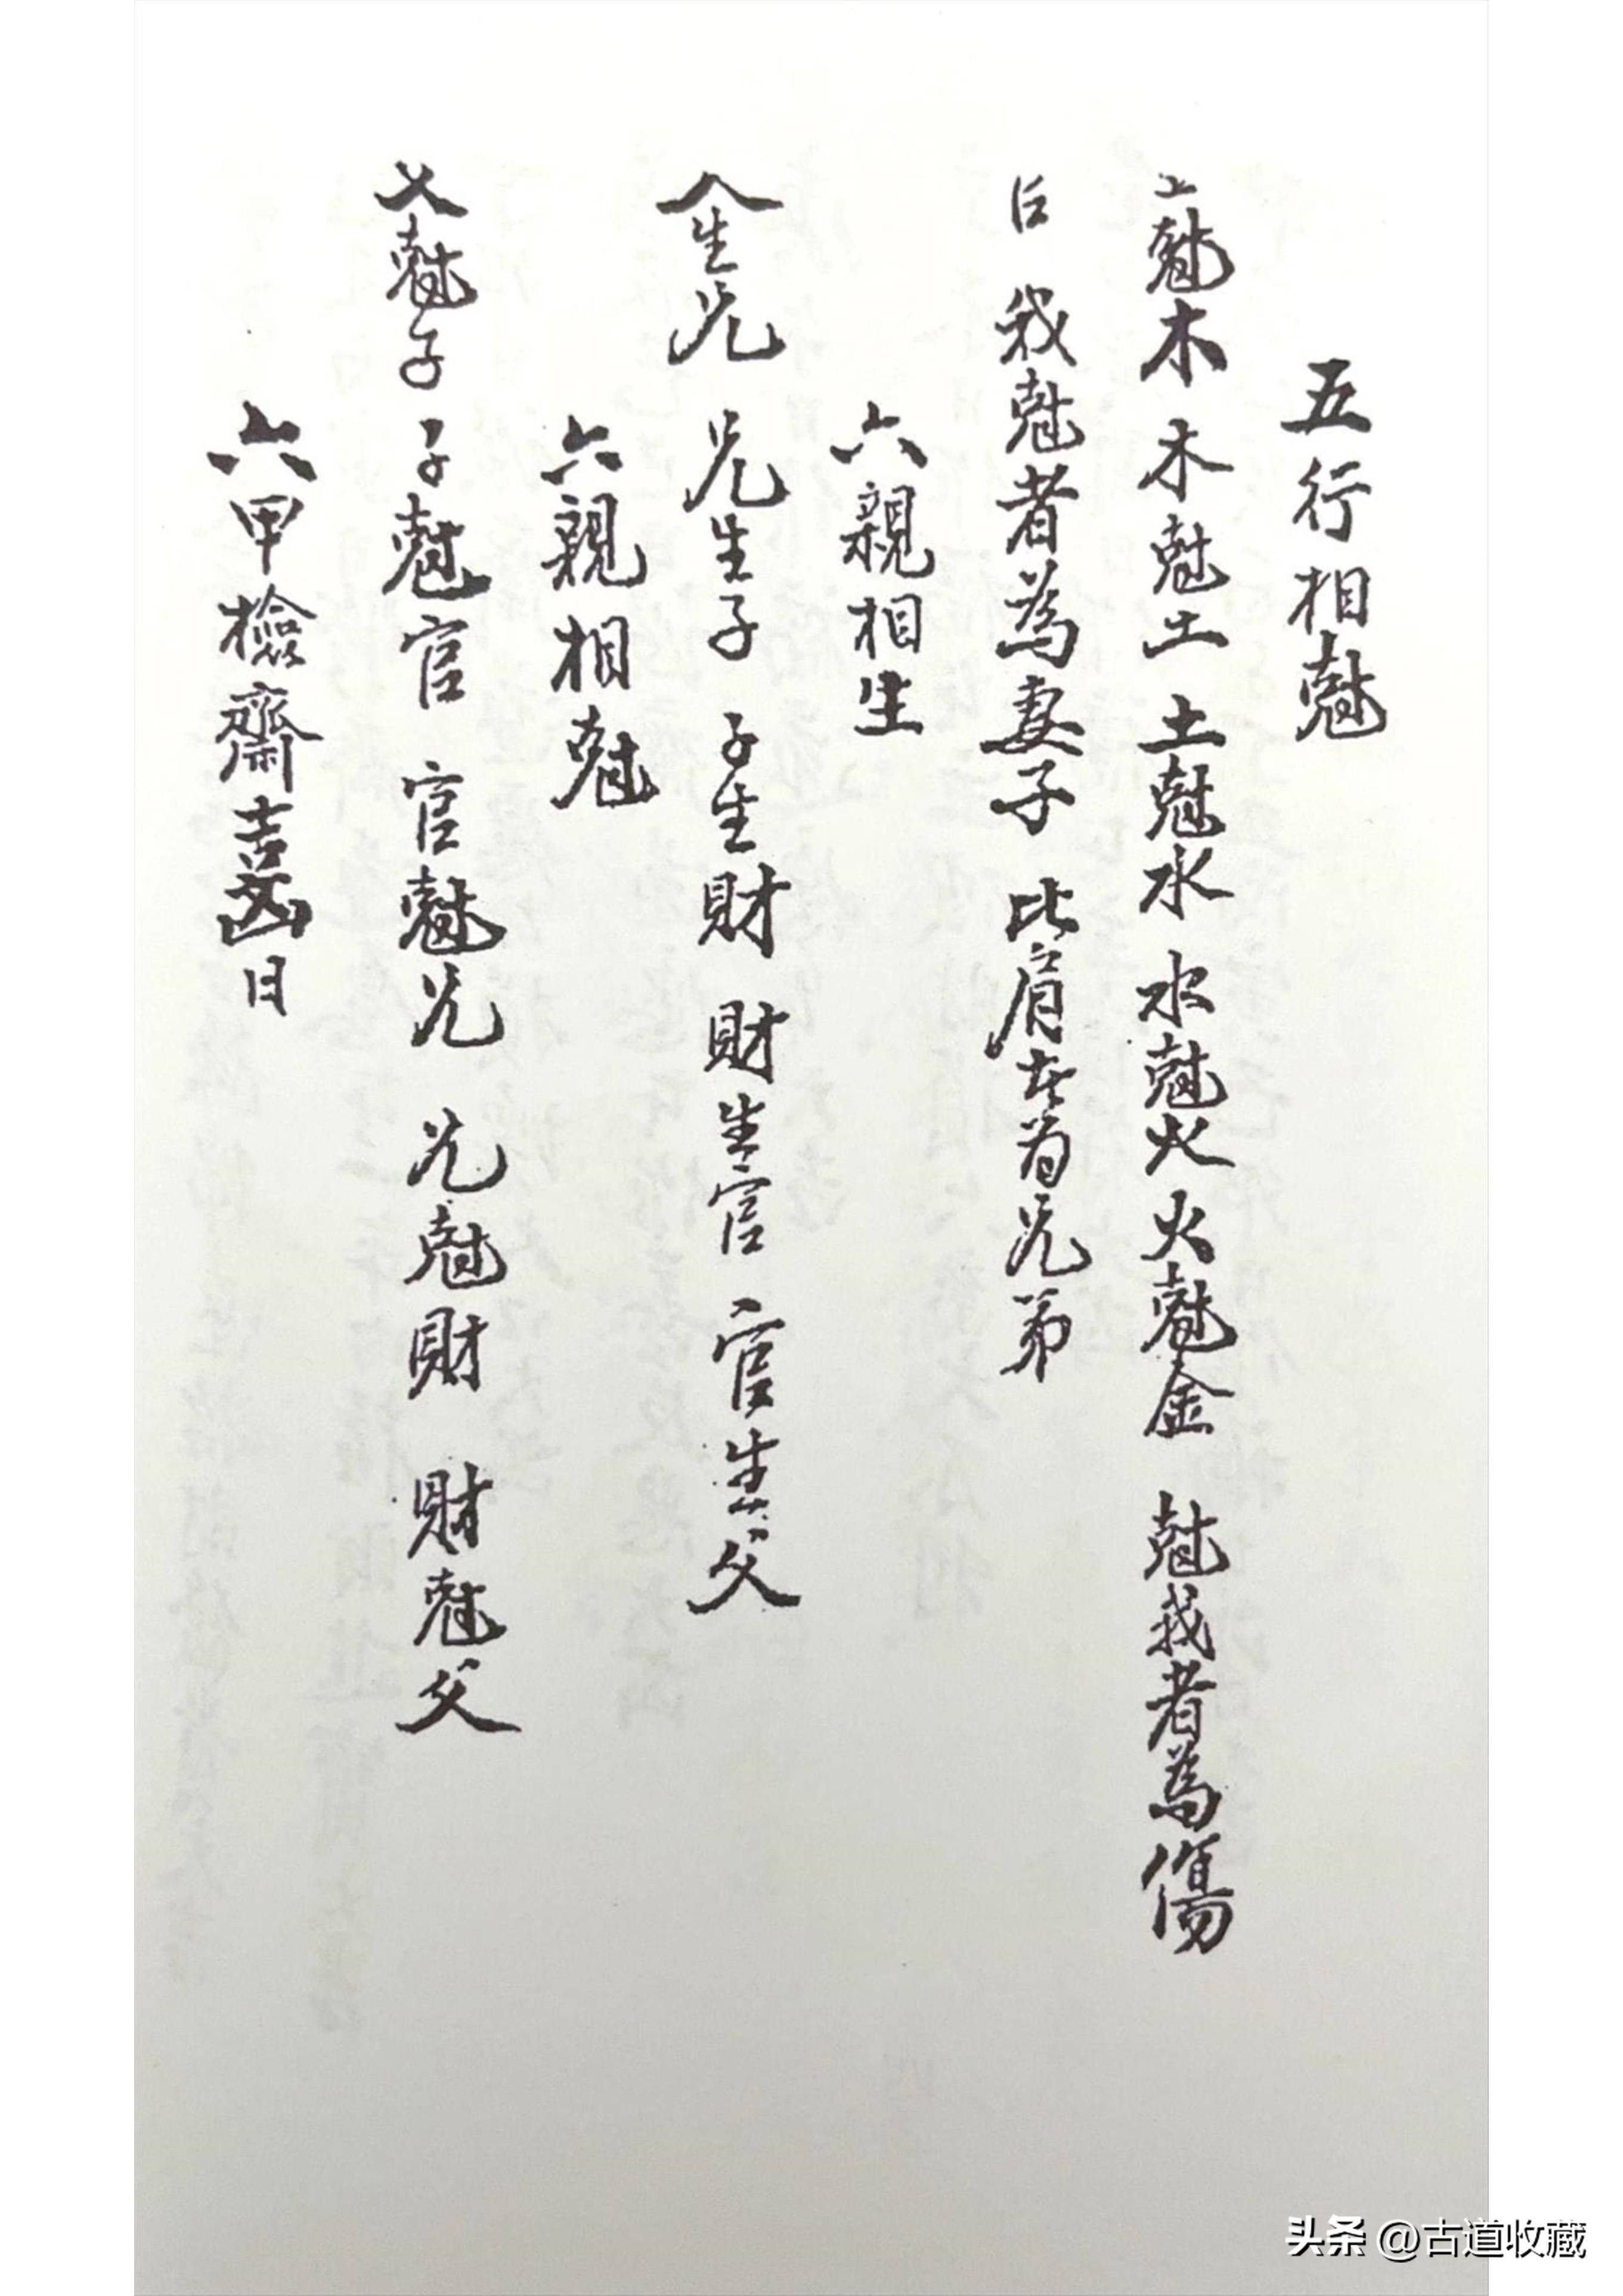 五行相尅
尅木 木尅土 土尅水 水尅火 火尅金 尅我者為傷
我尅者為妻子 比肩者为兄弟
六親相生
父生兄 兄生子 子生財 財生官 官生父
六親相尅
父尅子 子尅官 官尅兄 兄尅財 財尅父
六甲檢齋吉凶日
头条 @古道收藏